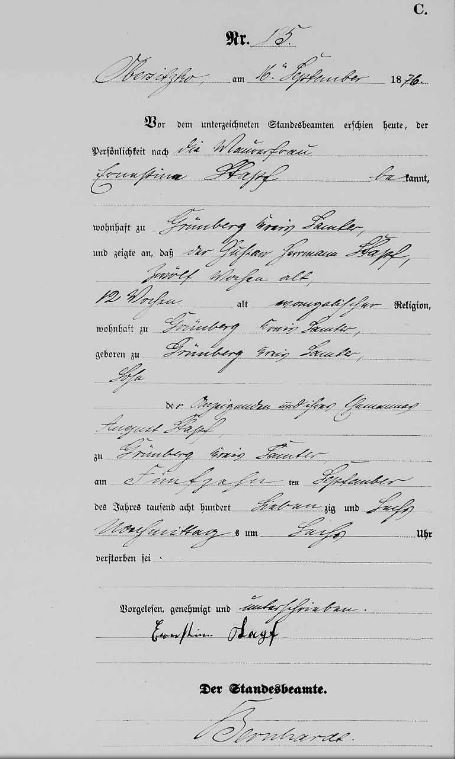 C.
Nr. 15.
Obersitzko, am 16ten September 1876.
Vor dem unterzeichneten Standesbeamten erschien heute, der
Persönlichkeit nach die Maurerfrau
Ernestine Stapf bekannt,
wohnhaft zu Grünberg Kreis Samter,
und zeigte an, daß der Gustav Hermann Stapf,
zwölf Wochen alt,
12 Wochen alt evangelischer Religion,
wohnhaft zu Grünberg Kreis Samter,
geboren zu Grünberg Kreis Samter,
Sohn
der Anzeigenden und ihres Ehemannes
August Stapf
zu Grünberg Kreis Samter,
am Fünfzehn ten September
des Jahres tausend acht hundert Sieben zig und Sechs
Nachmittags um Sechs Uhr
verstorben sei.
Vorgelesen, genehmigt und unterschrieben.
Ernstine Stapf
Der Standesbeamte.
Bernhardt.